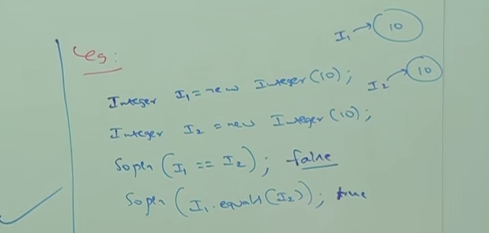 eg:
I1 → 10
Integer I1 = new Integer(10);
I2 → 10
Integer I2 = new Integer(10);
Sopln (I1 == I2); false
Sopln (I1.equals(I2)); true